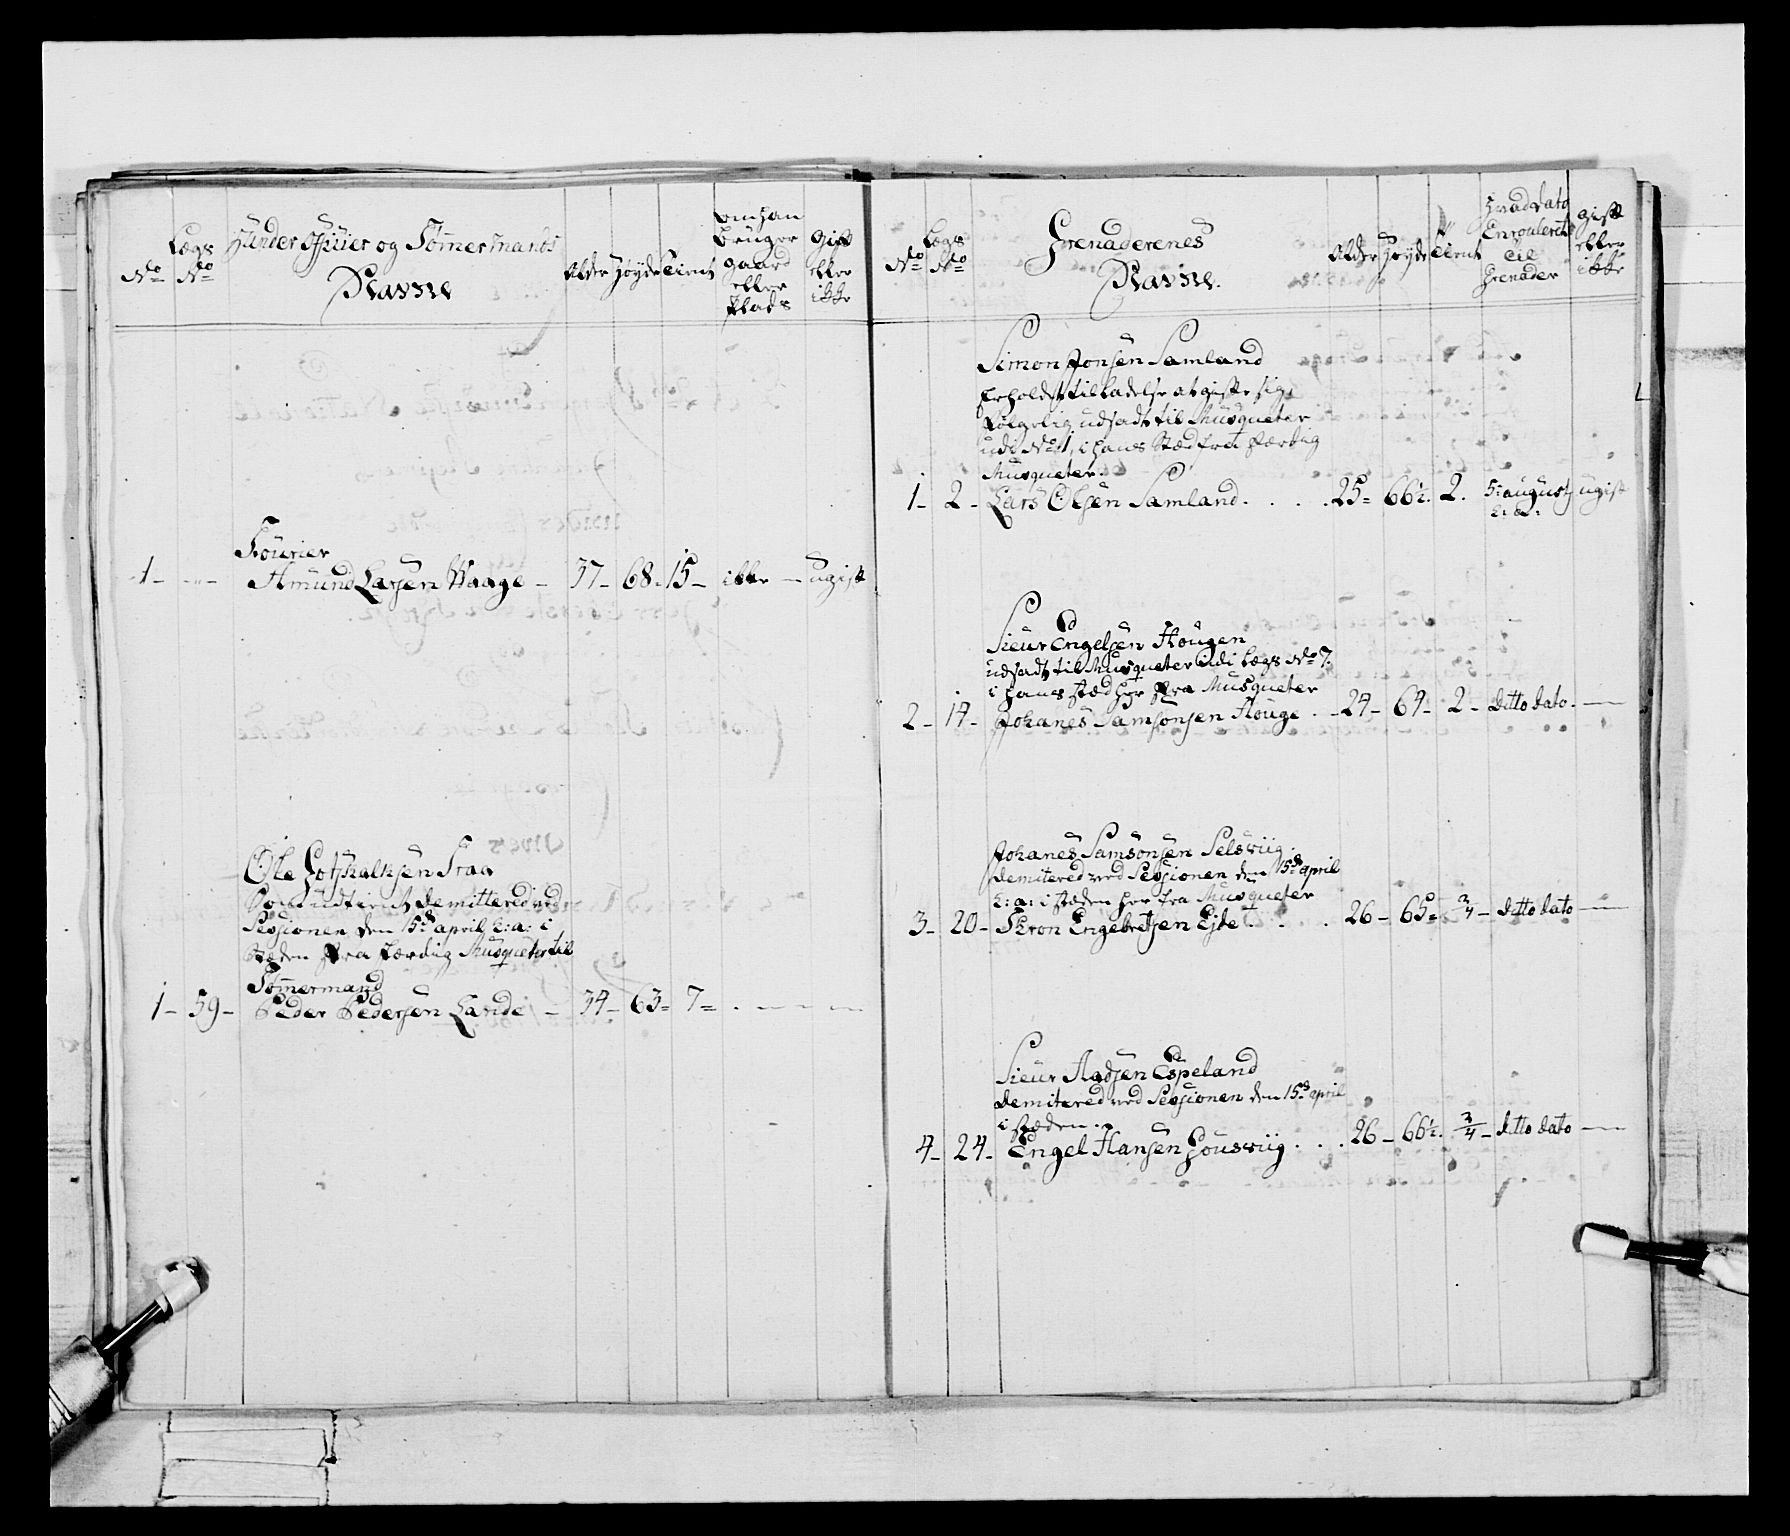 No
Lægs No
Under Officier og Tømermands
Navne
Alder
Høyde
Tient
om han
bruger
gaard
eller
Plads
Gift
eller
ikke
1 - - " - Fourier
Amund Larsen Waage - 37 - 68 - 15 - ikke - ugift
Ole Gotskalksen Fraa
demittered ved
Sessionen den 15de april h: a: i
stæden fra færdig Musqueter til
Tømermand
1 - 59 - Peder Pedersen Lande - 34 - 63 = 7 = . - - -
No
Lægs No
Grenaderenes
Navne.
Alder
Høyde
Tient
Hvad dato
Enroulerct
til
Grenader
Gift
eller
ikke
Simon Jonsen Samland
Erholdet tilladelse at gifte sig,
følgelig udsadt til Musqueter
udi No 1, i hans Stæd fra færdig
Musqueter.
1 - 2 - Lars Olsen Samland . . . . 25 = 66½. 2. 5: august h: a: ugift
Sieur Engelsen Hougen
udsadt til Musqueter udi Lægs No 7.
i hans stæd her fra Musqueter
2 - 14 - Johanes Samsonsen Houge . . 24 - 64 - 2 - ditto dato . —
Johanes Samsonsen Selsviig.
demitered ved Sessionen den 15de april
h: a: i stæden her fra Musqueter
3 - 20 - Skron Engebretsen Eide . . . . 26 - 65 = 3/4 - ditto dato —
Sieur Aadsen Espeland
demitered ved Sessionen den 15de april
i stæden.
4 - 24 - Engel Hansen Housviig . . . 26 - 66½. 3/4 - ditto dato —